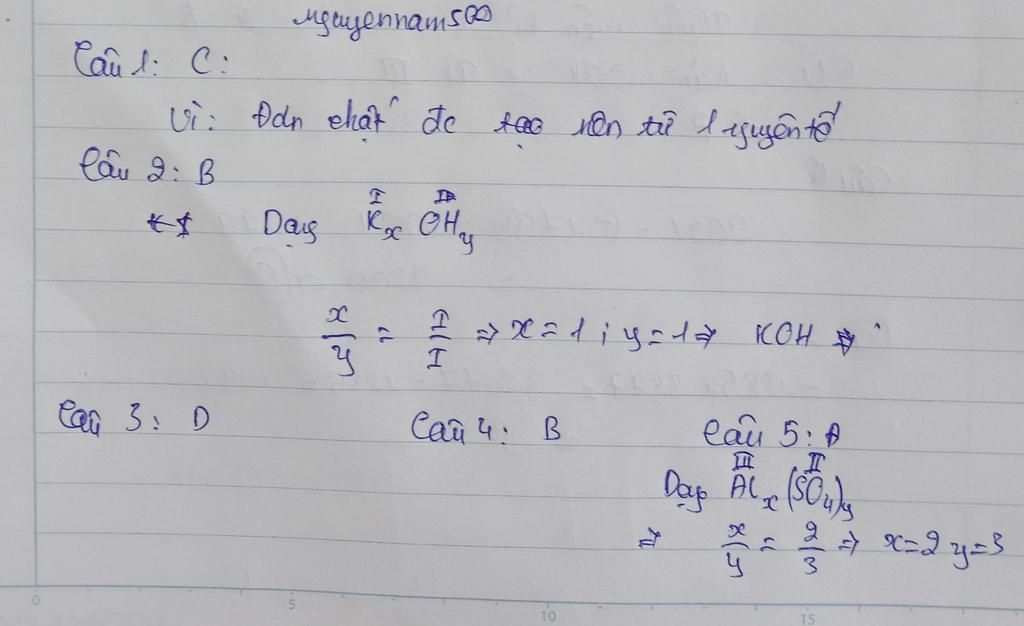 nguyennam500
Câu 1: C:
Vì: Đơn chất đc tạo nên từ 1 nguyên tố
Câu 2: B
Dạng K^I_x OH_y
x/y = I/I ⇒ x = 1 ; y = 1 ⇒ KOH
Câu 3: D Câu 4: B Câu 5: A
Dạng Al^III_x (SO4)^II_y
⇒ x/y = 2/3 ⇒ x=2 y=3
0 5 10 15